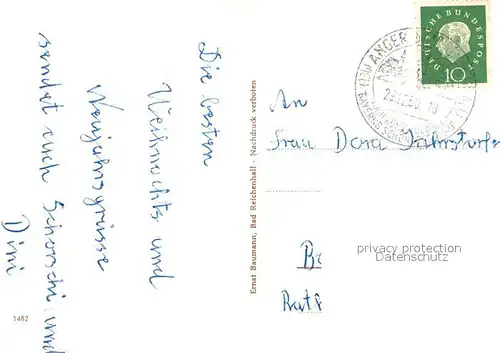 Die besten
Weihnachts und
Neujahrsgrüsse
sendet euch Schorschi und
Dini
1482
Ernst Baumann, Bad Reichenhall - Nachdruck verboten
DEUTSCHE BUNDESPOST
10
ANGER
An
Frau Dora Jahnstorfer
privacy protection
Datenschutz